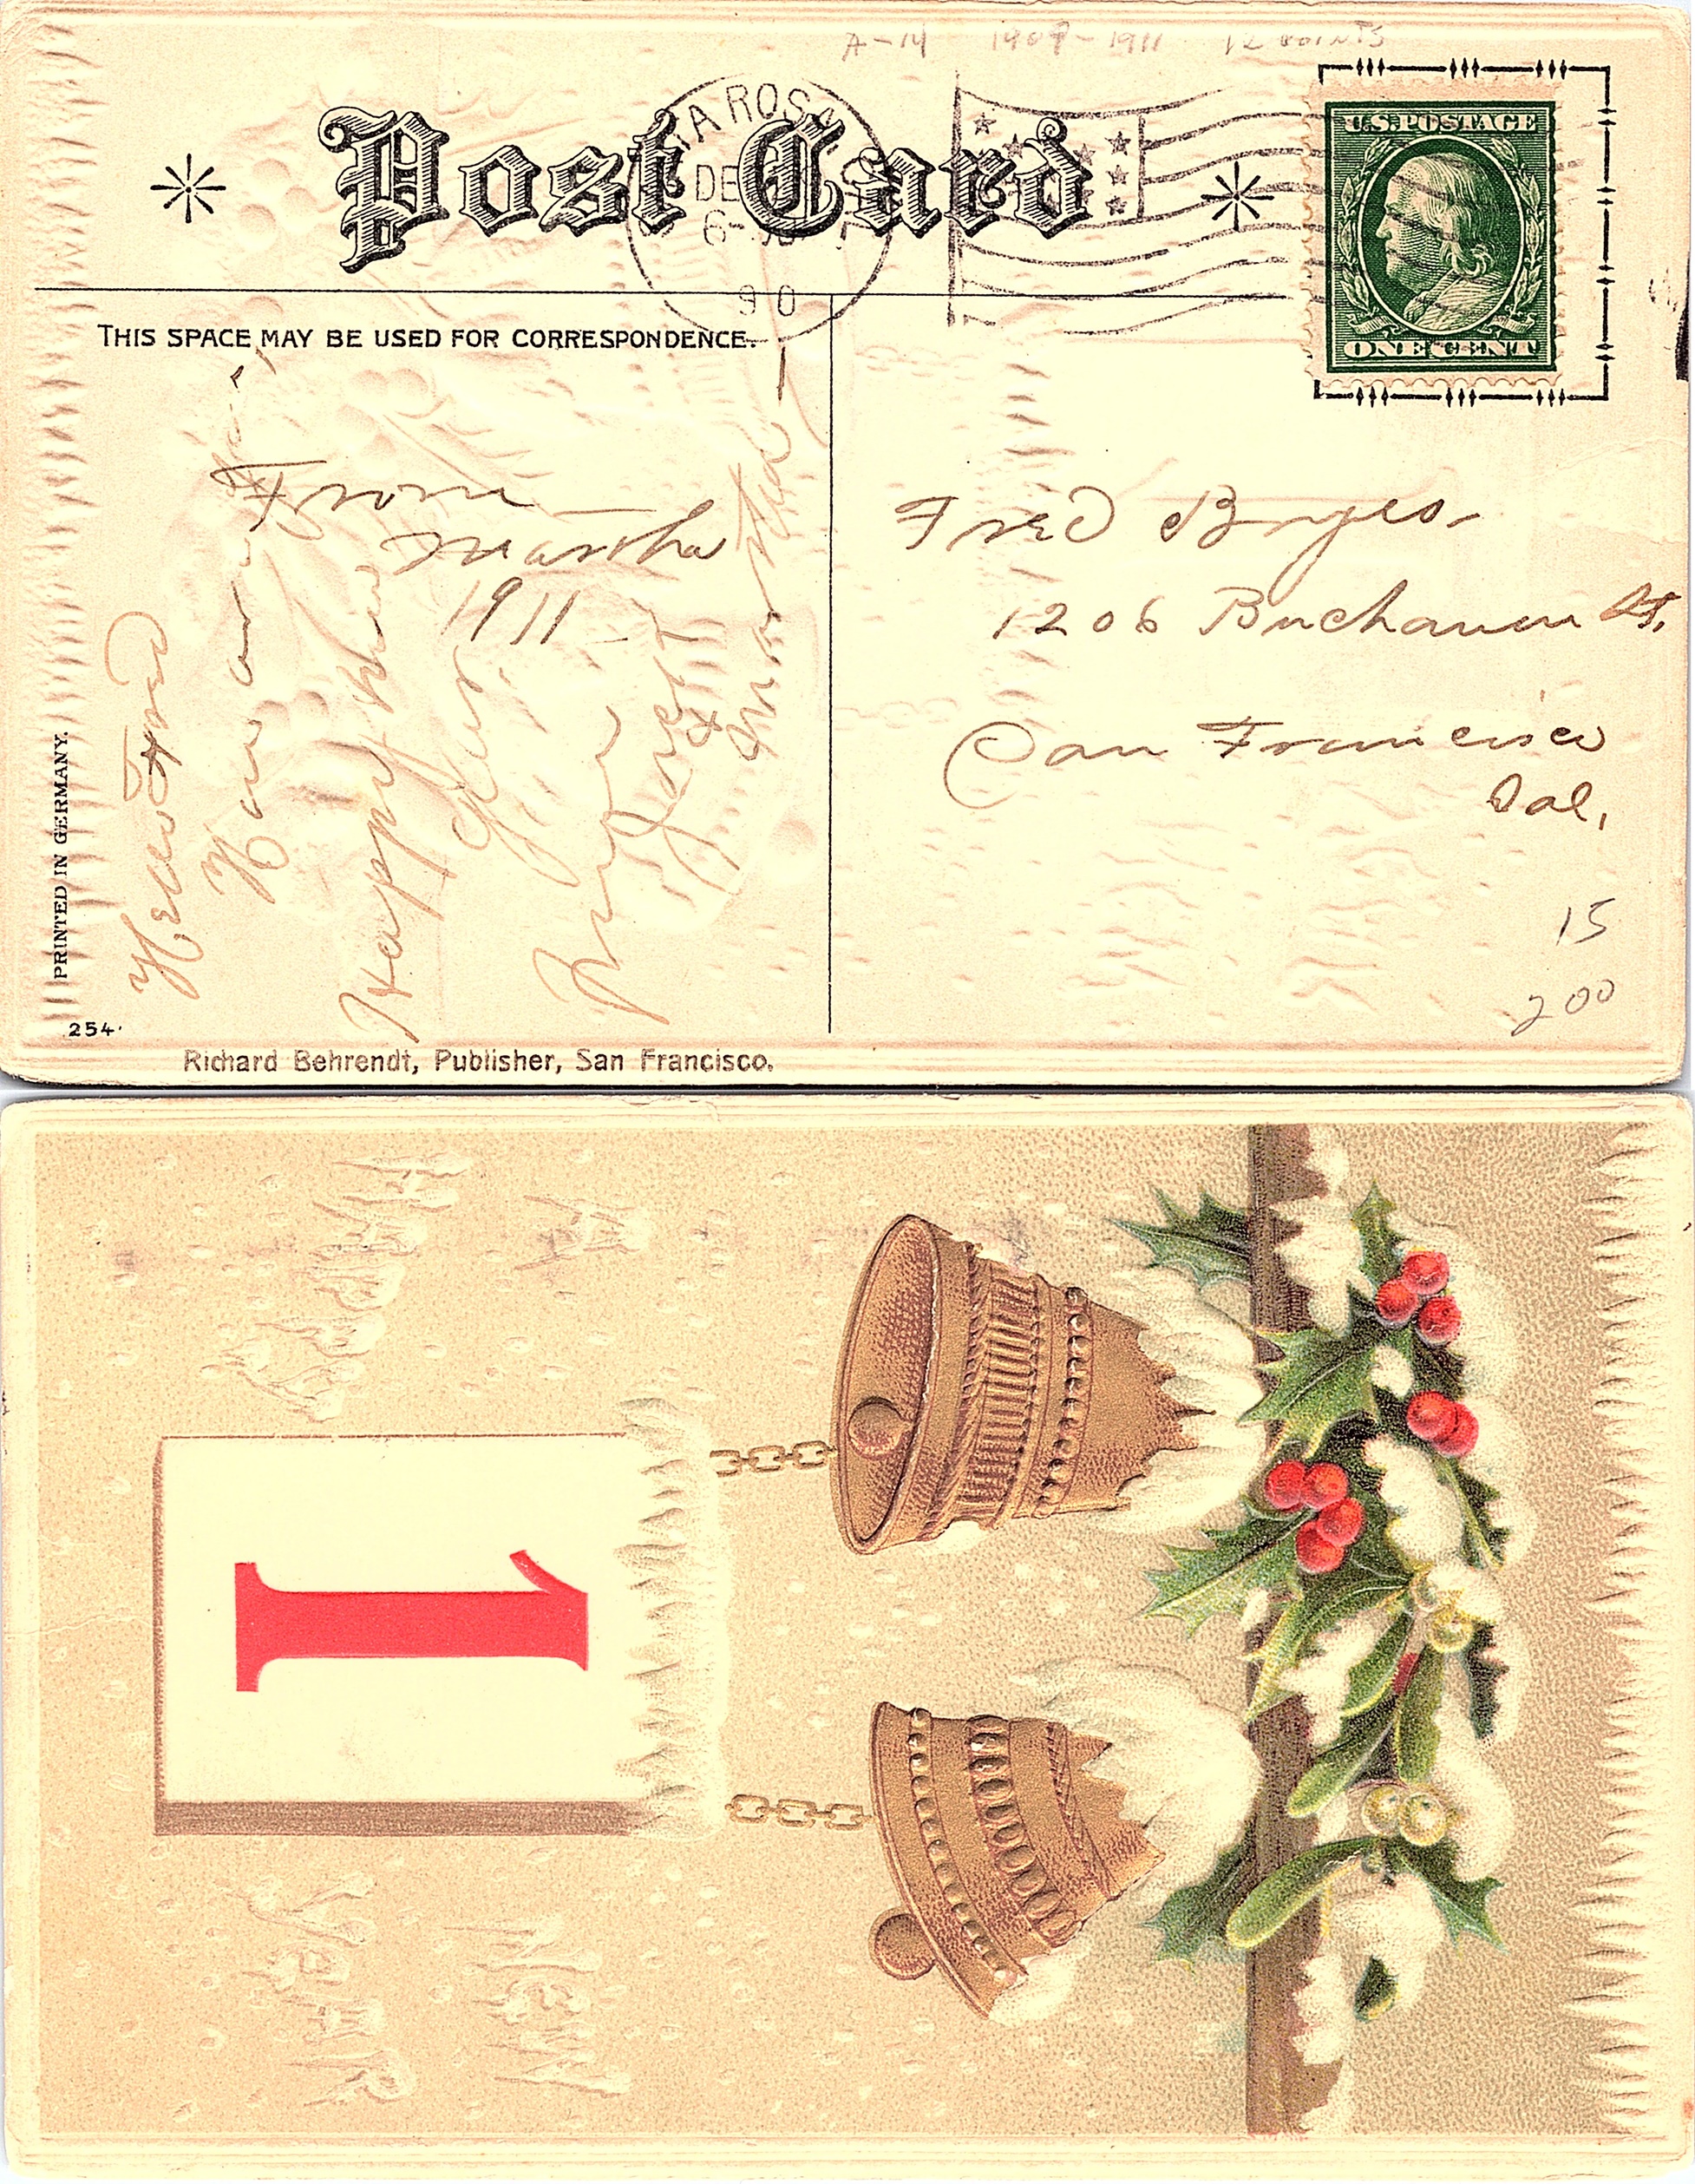 A-14 1907-1911 12 POINTS
Post Card
TA ROSA
DE
6-
90
U.S. POSTAGE
ONE CENT
THIS SPACE MAY BE USED FOR CORRESPONDENCE.
From
Martha
1911
Hello Fred
How are
Happy New
Year
from
Martha
Fred Boyes.
1206 Buchanan St.
San Francisco
Cal.
15
200
PRINTED IN GERMANY.
254.
Richard Behrendt, Publisher, San Francisco.
A
HAPPY
1
NEW
YEAR